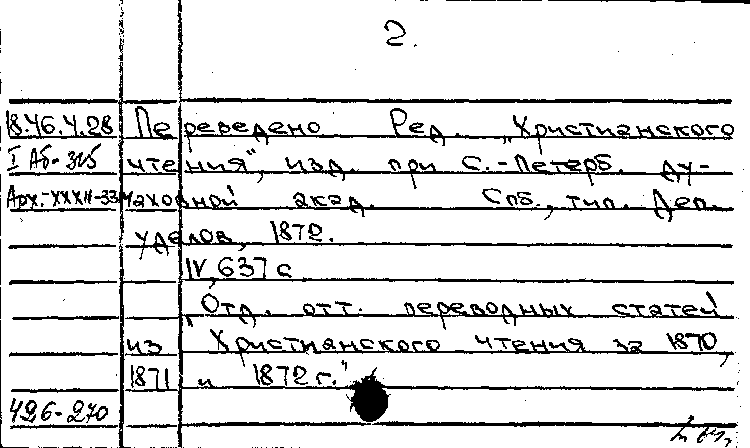 2.
18.46.4.28 Переведено Ред. „Христианского
I Аб-315 чтения", изд. при С.-Петерб. ду-
Арх.-XXXII-33 ховной акад. Спб., тип. Деп.
уделов, 1872.
IV, 637 с
„Отд. отт. переводных статей
из Христианского чтения за 1870,
1871 и 1872 г."
426-270